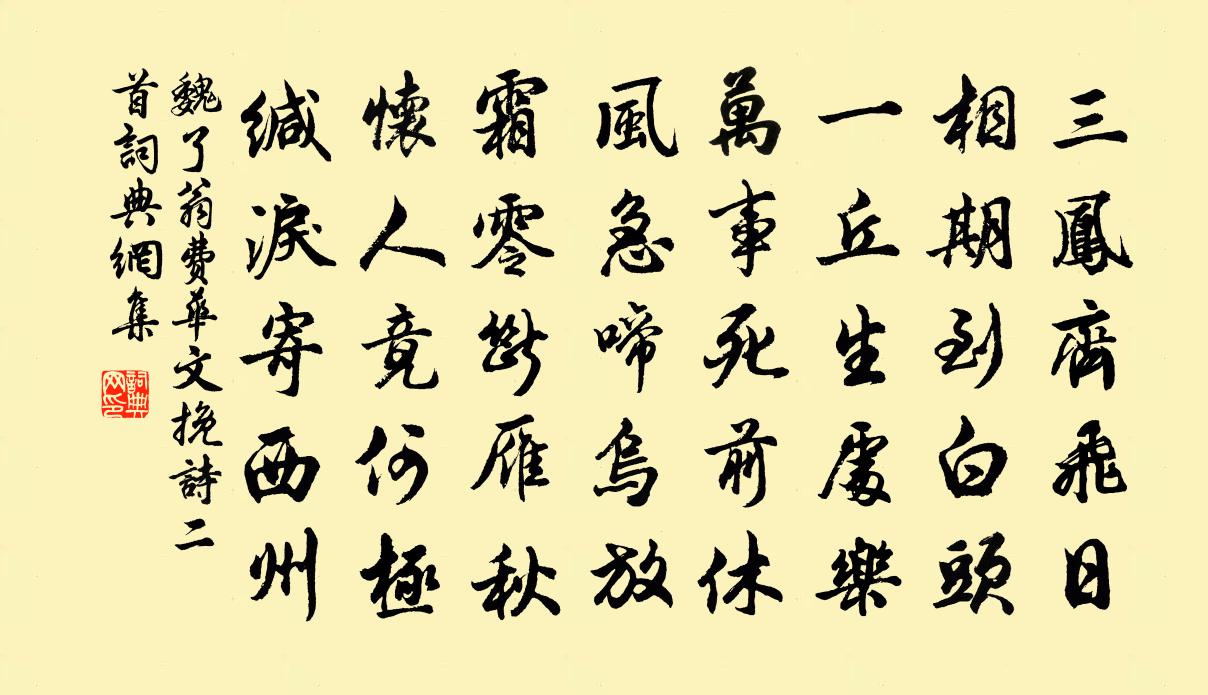 三鳳齊飛日
相期到白頭
一丘生處樂
萬事死前休
風急啼烏放
霜零斷雁秋
懷人竟何極
緘淚寄西州
魏了翁費華文挽詩二
首詞典網集
詞典
网印